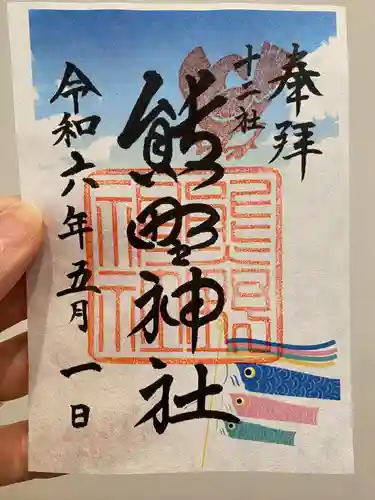 奉拝
十二社
熊野神社
令和六年五月一日